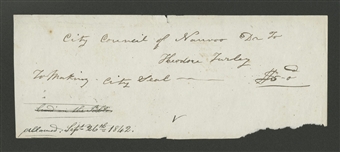 City Council of Nauvoo Dr To
Theodore Turley
To Making City Seal —— $5.0
allowed Sept. 26th 1842.